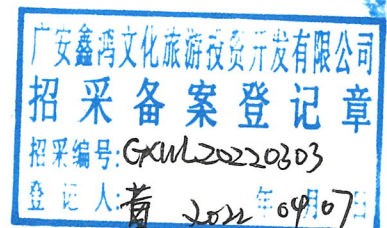 广安鑫鸿文化旅游投资开发有限公司
招采备案登记章
招采编号:GXWL20220303
登记人:黄 2022年04月07日